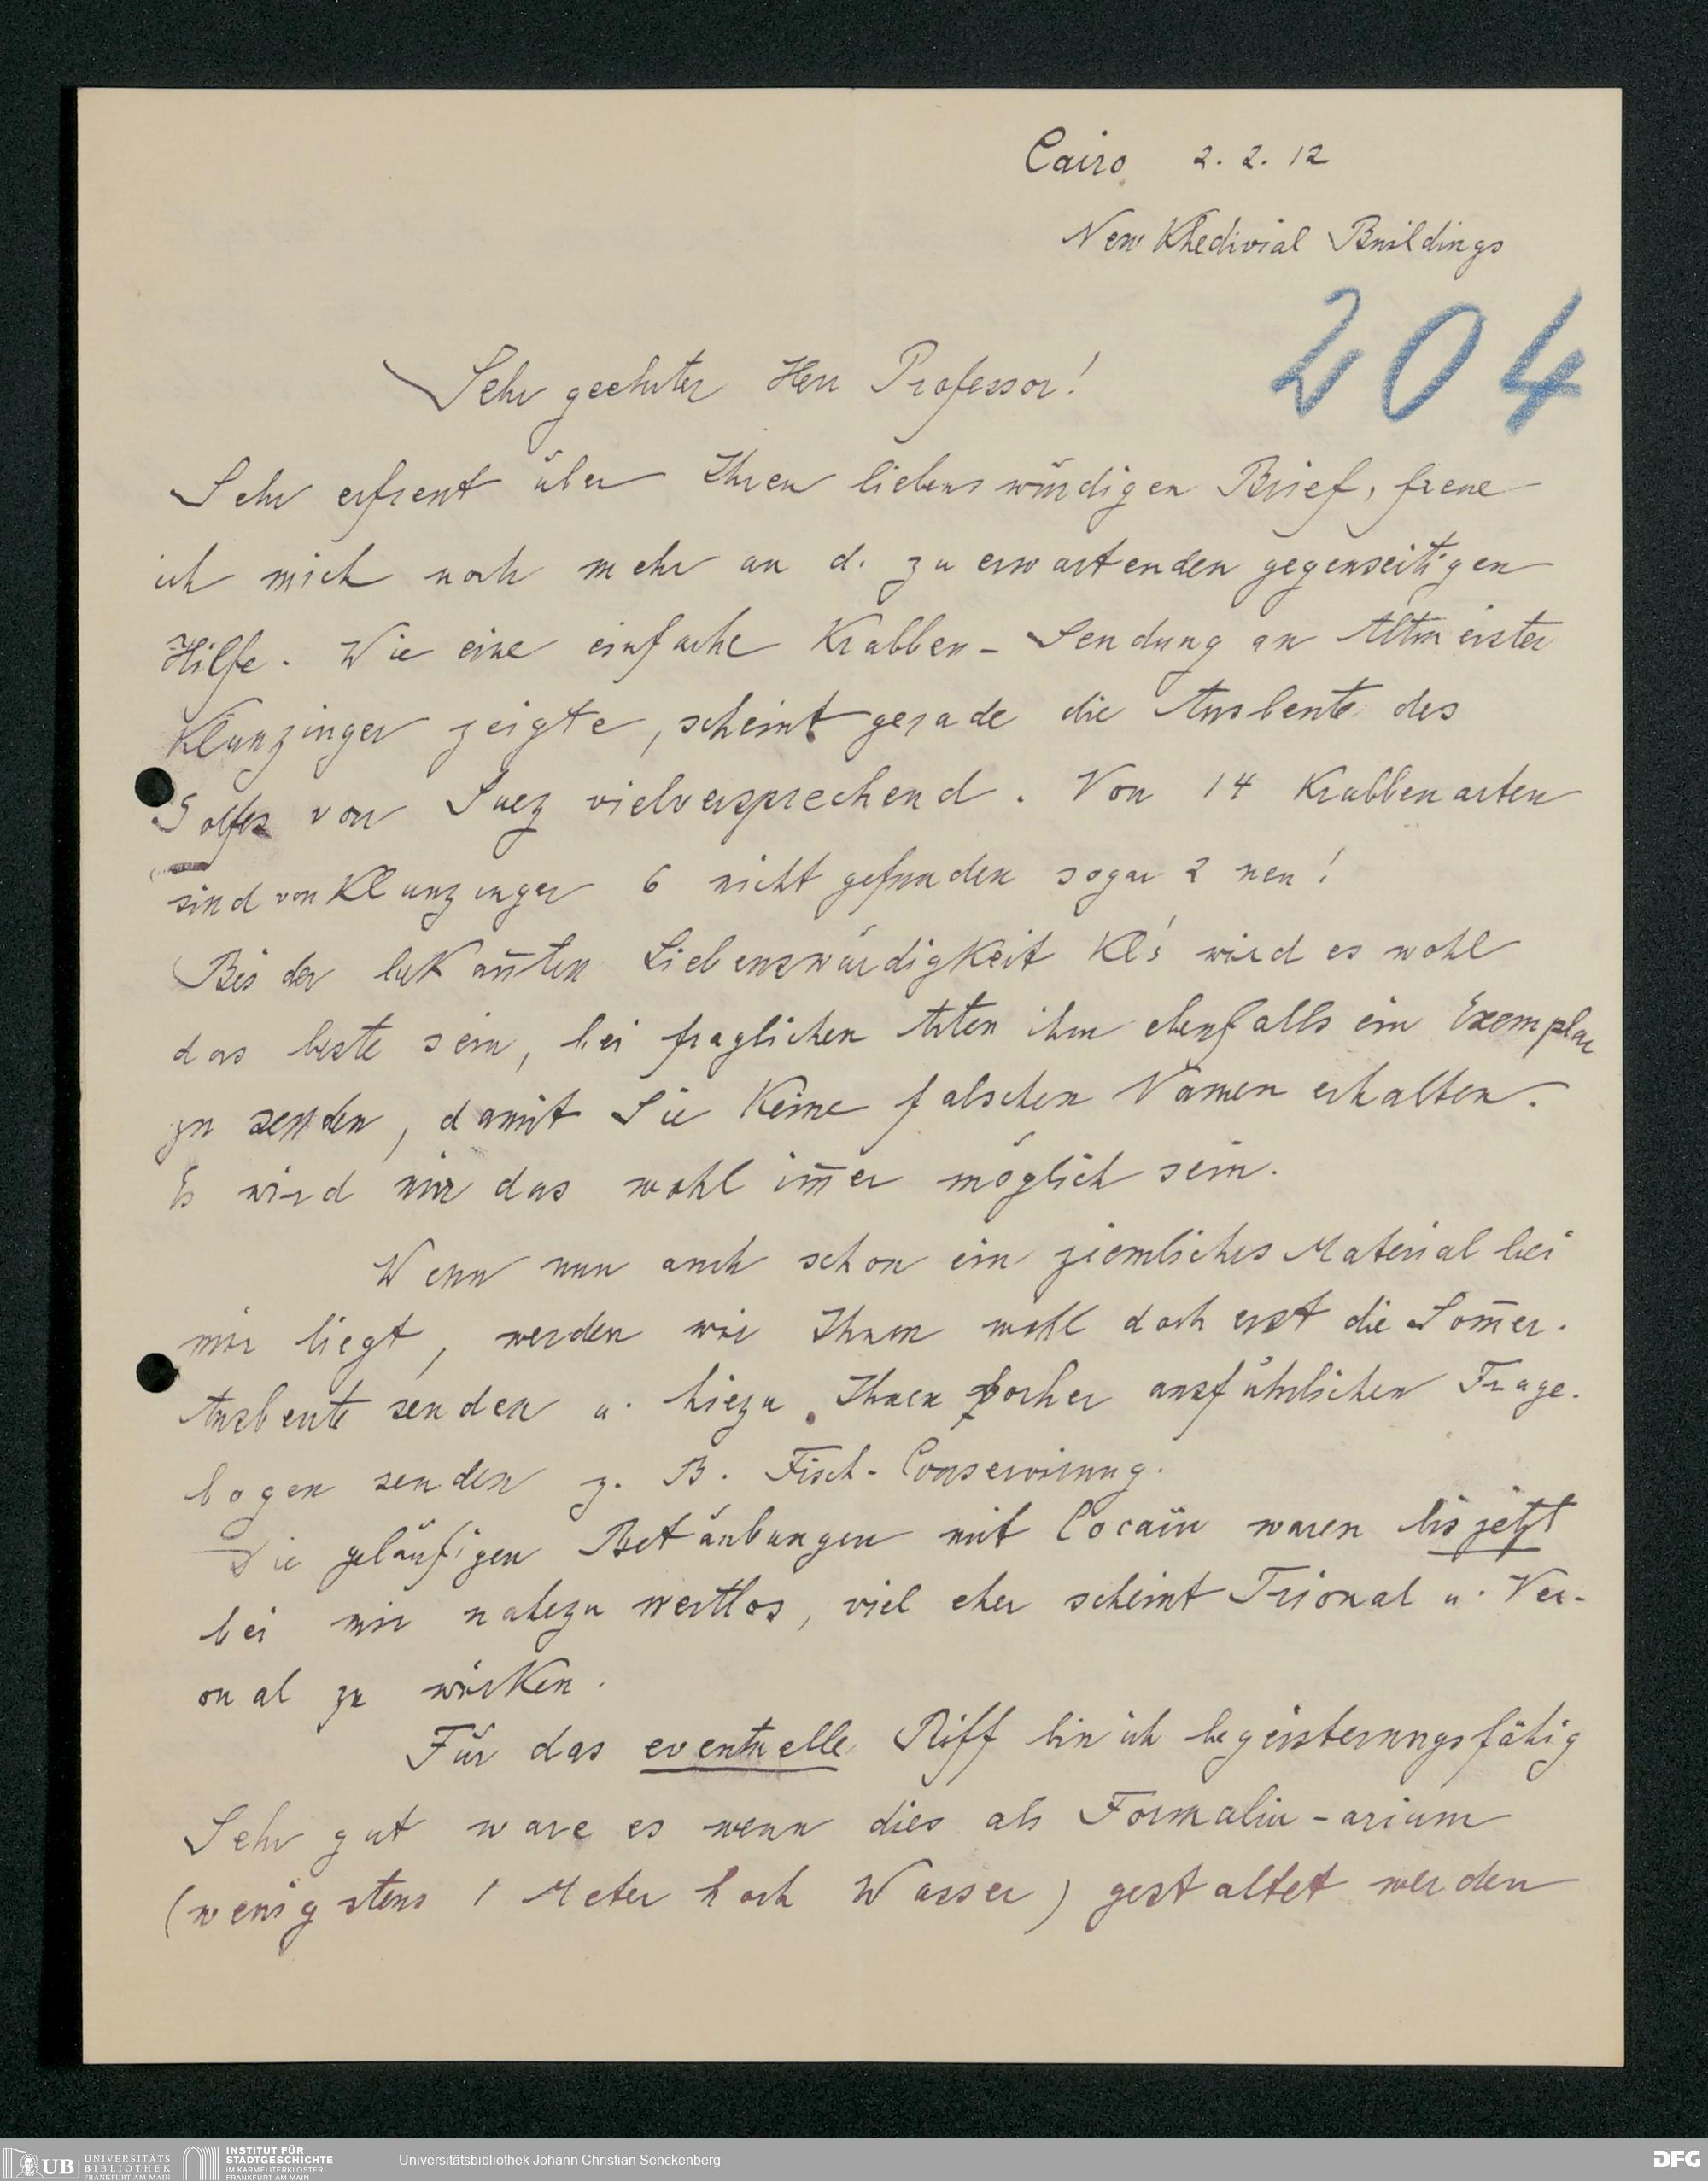 Cairo 2. 2. 12
New Khedivial Buildings
204
Sehr geehrter Herr Professor!
Sehr erfreut über Ihren liebenswürdigen Brief, freue
ich mich noch mehr an d. zu erwartenden gegenseitigen
Hilfe. Wie eine einfache Krabben-Sendung an Altmeister
Klunzinger zeigte, scheint gerade die Ausbeute des
Golfes von Suez vielversprechend. Von 14 Krabbenarten
sind von Klunzinger 6 nicht gefunden sogar 2 neu!
Bei der bekan̄ten Liebenswürdigkeit Kl's wird es wohl
das beste sein, bei fraglichen Arten ihm ebenfalls ein Exemplar
zu senden, damit Sie keine falschen Namen erhalten.
Es wird mir das wohl im̄er möglich sein.
Wenn nun auch schon ein ziemliches Material bei
mir liegt, werden wir Ihnen wohl doch erst die Som̄er-
Ausbeute senden u. hiezu Ihnen vorher ausführlichen Frage-
bogen senden z. B. Fisch-Conservirung.
Die geläufigen Betäubungen mit Cocaïn waren bis jetzt
bei mir nahezu wertlos, viel eher scheint Trional u. Ver-
onal zu wirken.
Für das eventuelle Riff bin ich begeisterungsfähig
Sehr gut ware es wenn dies als Formalin-arium
(wenigstens 1 Meter hoch Wasser) gestaltet werden
UB UNIVERSITÄTS
BIBLIOTHEK
FRANKFURT AM MAIN
INSTITUT FÜR
STADTGESCHICHTE
IM KARMELITERKLOSTER
FRANKFURT AM MAIN
Universitätsbibliothek Johann Christian Senckenberg
DFG